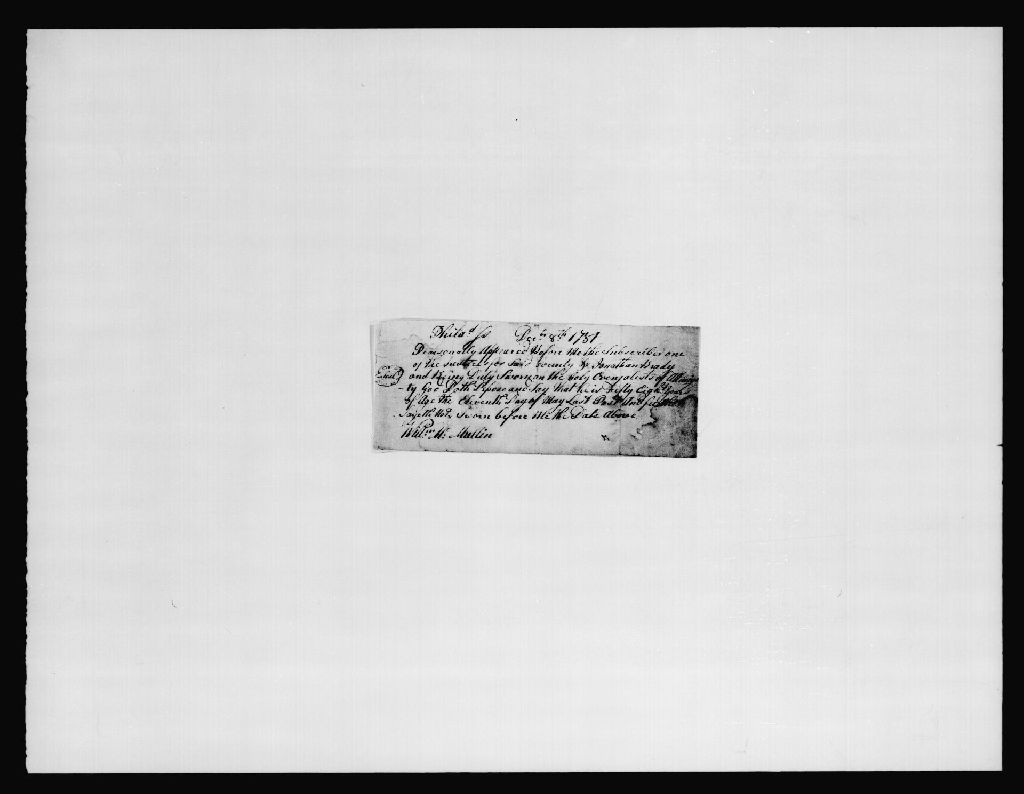 Philad ss Decbr 8th 1781
Personally Appeared before Me the Subscriber one
of the Justices for said County Jonathan Brady
Seal and Being Duly Sworn on the Holy Evangelists of Almigh
ty God Doth Depose and Say that he is Fifty Eight
of Age the Eleventh Day of May Last Past
Sayeth Not, Sworn before Me the Date Above
Willm Mc Mullin